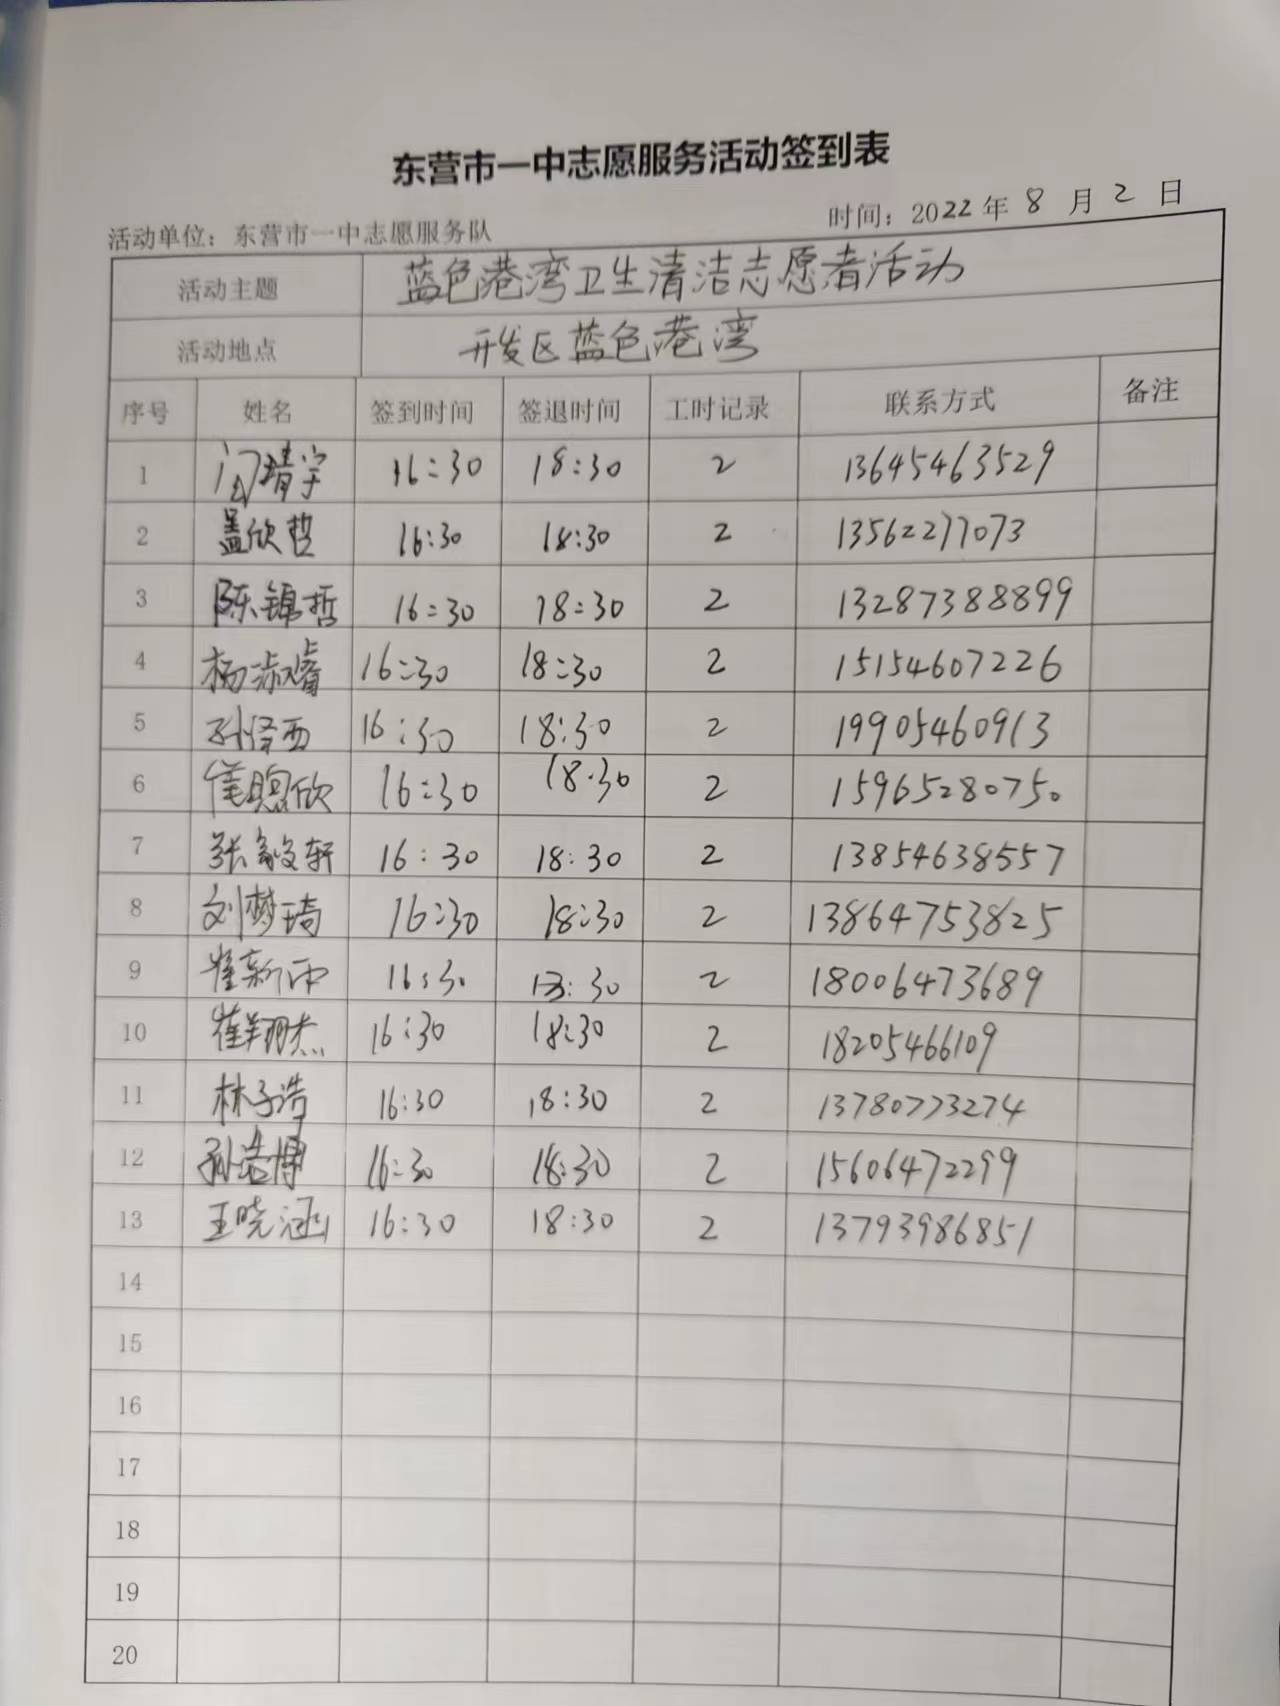 东营市一中志愿服务活动签到表
活动单位：东营市一中志愿服务队 时间：2022年 8 月 2 日
活动主题 蓝色港湾卫生清洁志愿者活动
活动地点 开发区蓝色港湾
序号 姓名 签到时间 签退时间 工时记录 联系方式 备注
1 闫靖宇 16:30 18:30 2 13645463529
2 盖欣哲 16:30 18:30 2 13562277073
3 陈锦哲 16:30 18:30 2 13287388899
4 杨淑睿 16:30 18:30 2 15154607226
5 孙泽西 16:30 18:30 2 19905460913
6 欣 16:30 18.30 2 15965280750
7 张 轩 16:30 18:30 2 13854638557
8 刘梦琦 16:30 18:30 2 13864753825
9 崔新雨 16:30 18:30 2 18006473689
10 崔翔杰 16:30 18:30 2 18205466109
11 林子浩 16:30 18:30 2 13780773274
12 孙浩博 16:30 18:30 2 15606472299
13 王晓涵 16:30 18:30 2 13793986851
14
15
16
17
18
19
20